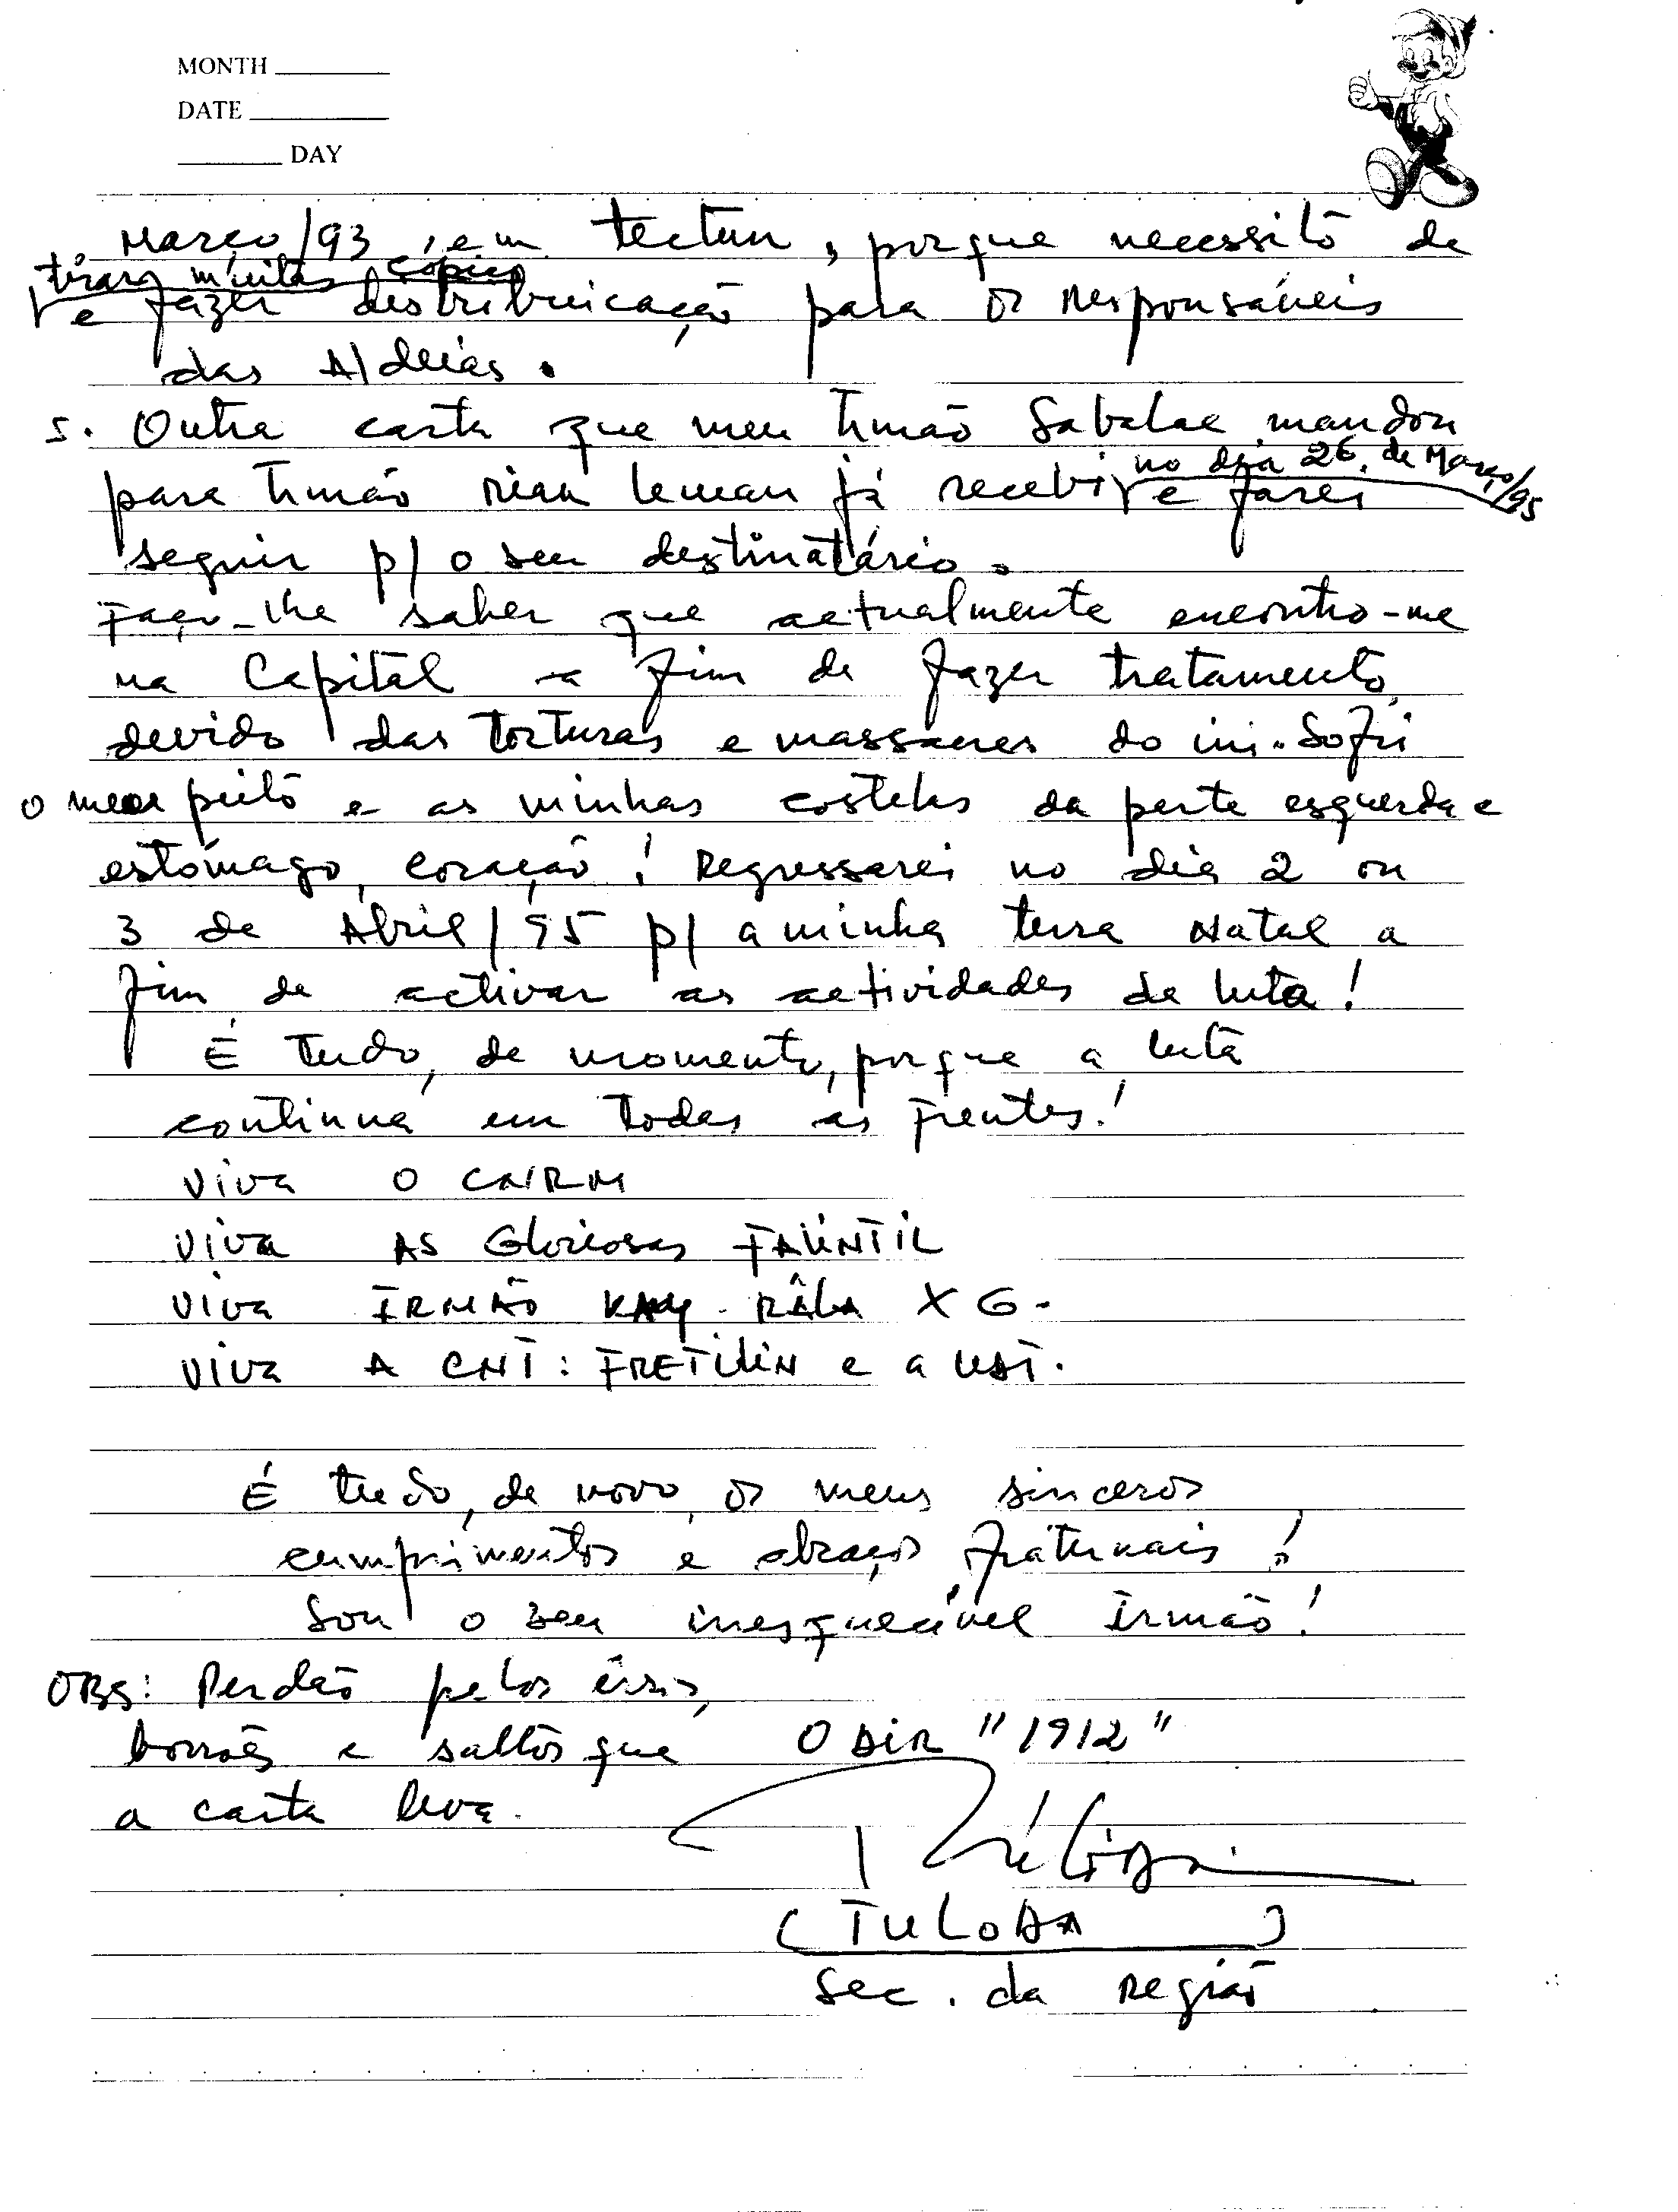 MONTH
DATE
DAY
Março/93, em tectun, porque necessito de
tirar muitas cópias
e fazer destribuicação para os responsáveis
das Aldeias.
5. Outra carta que meu Irmão Sabalae mandou
para Irmão riak leman já recebi no dia 26. de Março/95 e farei
seguir p/ o seu destinatário.
Faço-lhe saber que actualmente encontro-me
na Capital a fim de fazer tratamento,
devido das torturas e massacres do ini. Sofri
o meu peito e as minhas costelas da parte esquerda e
estômago, coração! Regressarei no dia 2 ou
3 de Abril/95 p/ a minha terra Natal a
fim de activar as actividades de luta!
É tudo, de momento, porque a luta
continua em todas as Frentes!
Viva O CNRM
Viva AS Gloriosas FALINTIL
Viva IRMÃO KAY. RÂLA X G.
Viva A CNT: FRETILIN e a UDT.
É tudo, de novo os meus sinceros
cumprimentos e abraços fraternais!
Sou o seu inesquecível irmão!
OBS: Perdão pelos êrros,
borrões e saltos que
a carta leva.
O DIR "1912"
(TULODA)
Sec. da Região